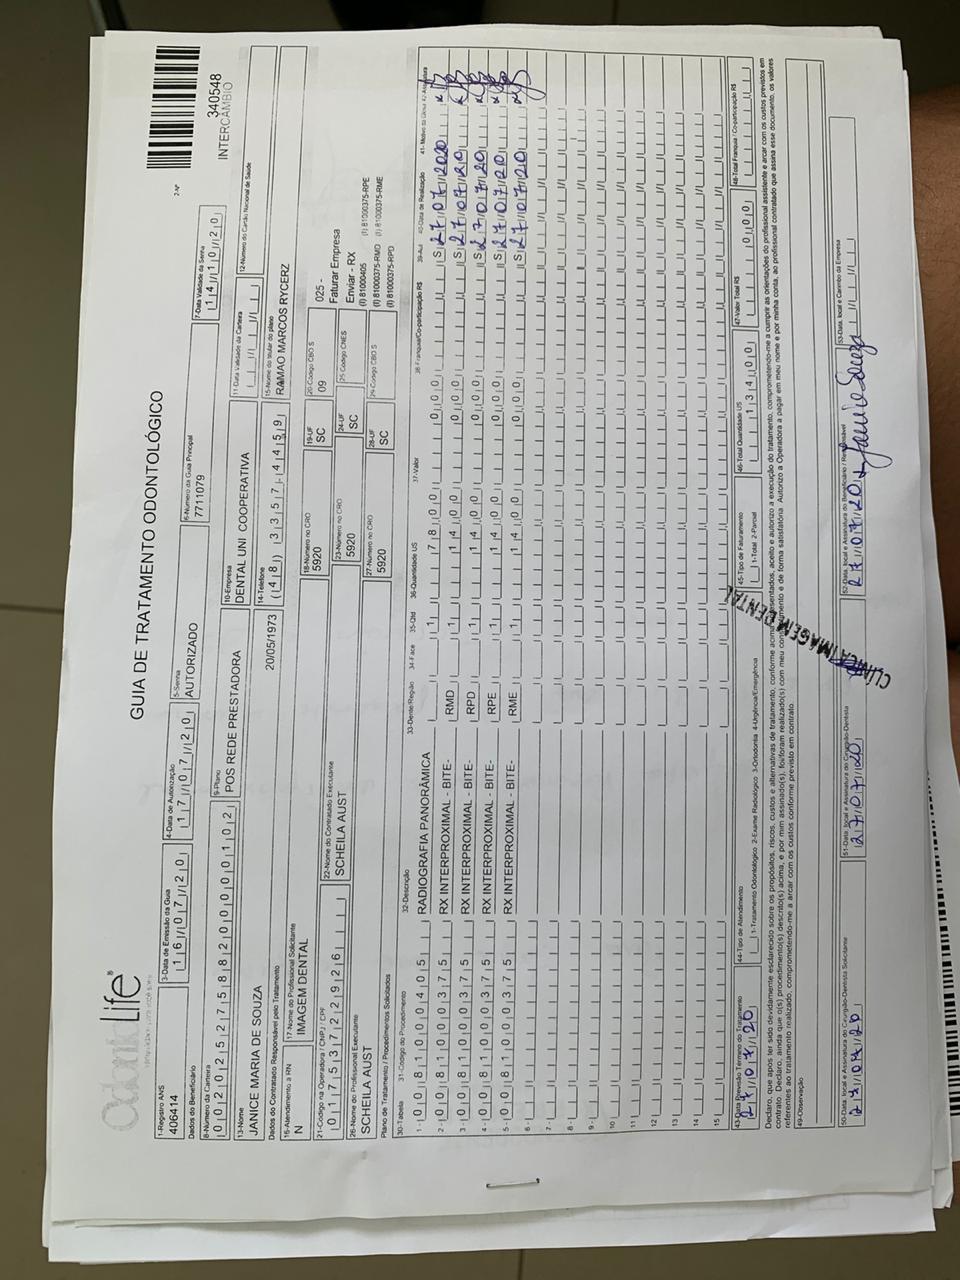 GUIA DE TRATAMENTO ODONTOLÓGICO
2-Nº
340548
INTERCÂMBIO
1-Registro ANS
406414
3-Data de Emissão da Guia
16/07/20
4-Data de Autorização
17/07/20
5-Senha
AUTORIZADO
6-Número da Guia Principal
7711079
7-Data Validade da Senha
14/10/20
Dados do Beneficiário
8-Número da Carteira
00202527588200000102
9-Plano
POS REDE PRESTADORA
10-Empresa
DENTAL UNI COOPERATIVA
11-Data Validade da Carteira
12-Número do Cartão Nacional de Saúde
13-Nome
JANICE MARIA DE SOUZA
20/05/1973
14-Telefone
(48) 3357-4459
15-Nome do titular do plano
RAMAO MARCOS RYCERZ
Dados do Contratado Responsável pelo Tratamento
16-Atendimento a RN
N
17-Nome do Profissional Solicitante
IMAGEM DENTAL
18-Número no CRO
5920
19-UF
SC
20-Código CBO S
09
025 -
Faturar Empresa
Enviar - RX
(I) 81000405
(I) 81000375-RPE
(I) 81000375-RMD (I) 81000375-RME
(I) 81000375-RPD
21-Código na Operadora / CNPJ / CPF
01753722926
22-Nome do Contratado Executante
SCHEILA AUST
23-Número no CRO
5920
24-UF
SC
25-Código CNES
26-Nome do Profissional Executante
SCHEILA AUST
27-Número no CRO
5920
28-UF
SC
29-Código CBO S
Plano de Tratamento / Procedimentos Solicitados
30-Tabela 31-Código do Procedimento 32-Descrição 33-Dente/Região 34-Face 35-Qtd 36-Quantidade US 37-Valor 38-Franquia/Co-participação R$ 39-Aut 40-Data de Realização
1- 00 81000405 RADIOGRAFIA PANORÂMICA 1 78,00 0,00 S 27/07/2020
2- 00 81000375 RX INTERPROXIMAL - BITE- RMD 1 14,00 0,00 S 27/07/20
3- 00 81000375 RX INTERPROXIMAL - BITE- RPD 1 14,00 0,00 S 27/07/20
4- 00 81000375 RX INTERPROXIMAL - BITE- RPE 1 14,00 0,00 S 27/07/20
5- 00 81000375 RX INTERPROXIMAL - BITE- RME 1 14,00 0,00 S 27/07/20
6-
7-
8-
9-
10
11
12
13
14
15
43-Data Previsão Término do Tratamento
27/07/20
44-Tipo de Atendimento
1-Tratamento Odontológico 2-Exame Radiológico 3-Ortodontia 4-Urgência/Emergência
45-Tipo de Faturamento
1-Total 2-Parcial
46-Total Quantidade US
134,00
47-Valor Total R$
0,00
48-Total Franquia / Co-participação R$
Declaro, que após ter sido devidamente esclarecido sobre os propósitos, riscos, custos e alternativas de tratamento, conforme acima apresentados, aceito e autorizo a execução do tratamento, comprometendo-me a cumprir as orientações do profissional assistente e arcar com os custos previstos em
contrato. Declaro, ainda que o(s) procedimento(s) descrito(s) acima, e por mim assinado(s), foi/foram realizado(s) com meu consentimento e de forma satisfatória. Autorizo a Operadora a pagar em meu nome e por minha conta, ao profissional contratado que assina esse documento, os valores
referentes ao tratamento realizado, comprometendo-me a arcar com os custos conforme previsto em contrato.
49-Observação
CLÍNICA IMAGEM DENTAL
50-Data, local e Assinatura do Cirurgião-Dentista Solicitante
27/07/20
51-Data, local e Assinatura do Cirurgião-Dentista
27/07/20
52-Data, local e Assinatura do Beneficiário / Responsável
27/07/20 Janice Souza
53-Data, local e Carimbo da Empresa